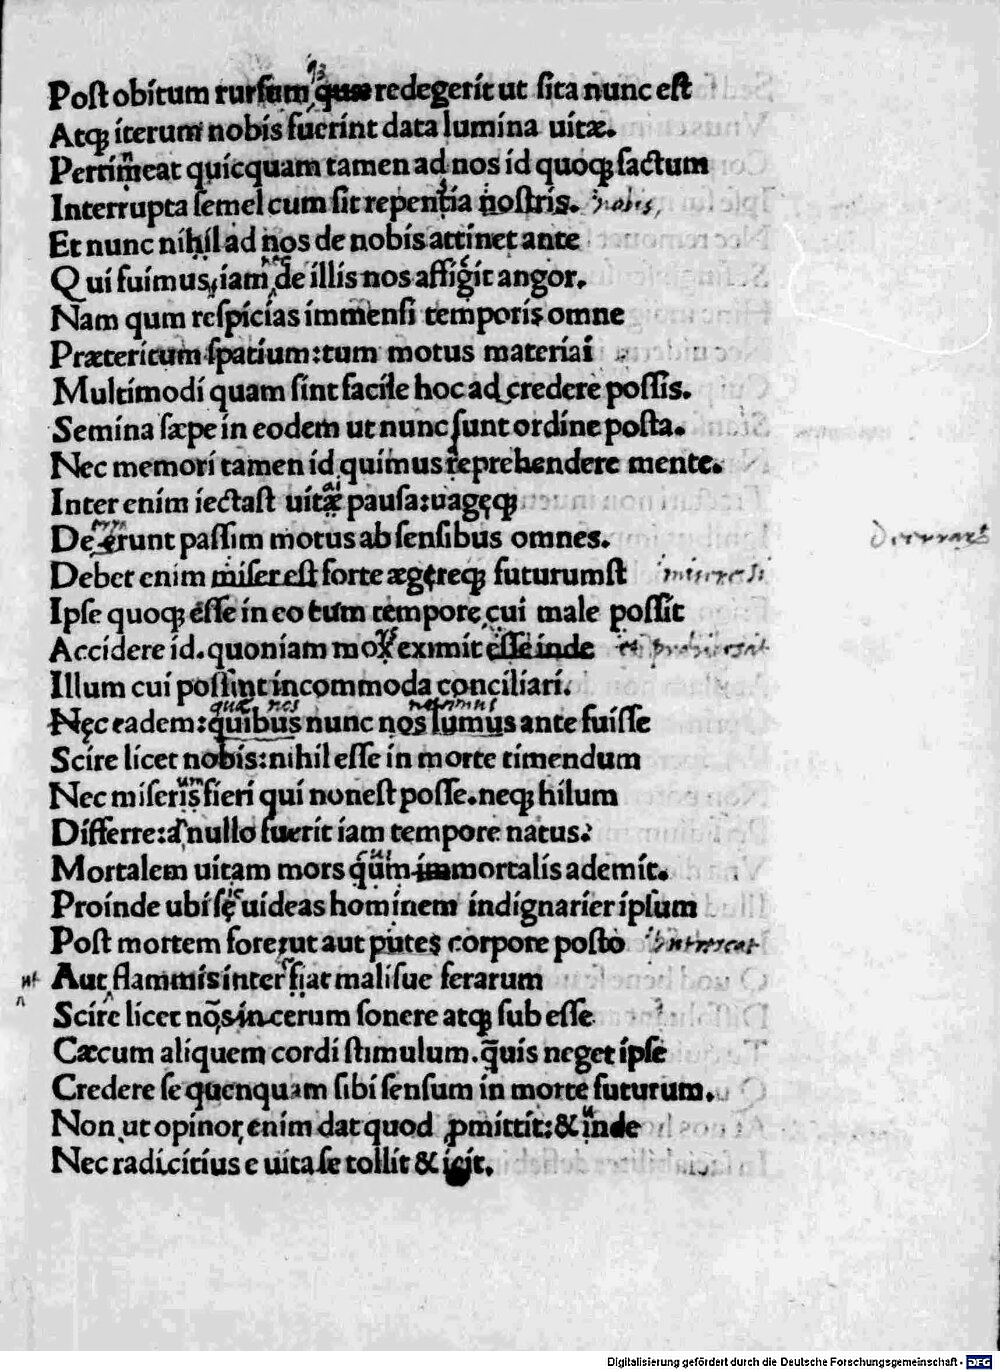 Poſt obitum rurſum quæ redegerit ut ſita nunc eſt
Atq; iterum nobis fuerint data lumina uitæ.
Pertineat quicquam tamen ad nos id quoq; factum
Interrupta ſemel cum ſit repentia noſtris. nobis,
Et nunc nihil ad nos de nobis attinet ante
Qui fuimus, iam nec de illis nos affigit angor.
Nam qum reſpicias immenſi temporis omne
Præteritum ſpatium: tum motus materiai
Multimodi quam ſint facile hoc ad credere poſſis.
Semina ſæpe in eodem ut nunc ſunt ordine poſta.
Nec memori tamen id quimus reprehendere mente.
Inter enim iectaſt uitæ ai pauſa: uagęq;
Deerunt paſſim motus ab ſenſibus omnes.
Debet enim miſer eſt forte ægreq; futurumſt
Ipſe quoq; eſſe in eo tum tempore, cui male poſſit
Accidere id. quoniam mox eximit eſſe inde
Illum cui poſſint incommoda conciliari.
quæ nos
Nęc eadem: quibus nunc nos ſumus ante fuiſſe
Scire licet nobis: nihil eſſe in morte timendum
um
Nec miſeris fieri qui noneſt poſſe. neq; hilum
Differre: an nullo fuerit iam tempore natus.
Mortalem uitam mors qum immortalis ademit.
Proinde ubi ſę uideas hominem indignarier ipſum
Poſt mortem fore, ut aut putes corpore poſto
ut Aut flammis inter fiat maliſue ferarum
Scire licet nõ ſincerum ſonere atq; ſub eſſe
Cæcum aliquem cordi ſtimulum. q̃uis neget ipſe
Credere ſe quenquam ſibi ſenſum in morte futurum.
Non, ut opinor, enim dat quod ꝓmittit: & inde
Nec radicitius e uita ſe tollit & icit.
Digitalisierung gefördert durch die Deutsche Forschungsgemeinschaft - DFG